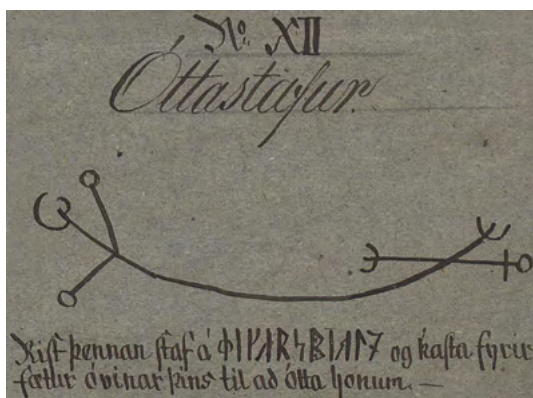 No. XII
Óttastafur.
Rist þennan staf á og kasta fyrir
fætur óvinar þins til ad ótta honum. —